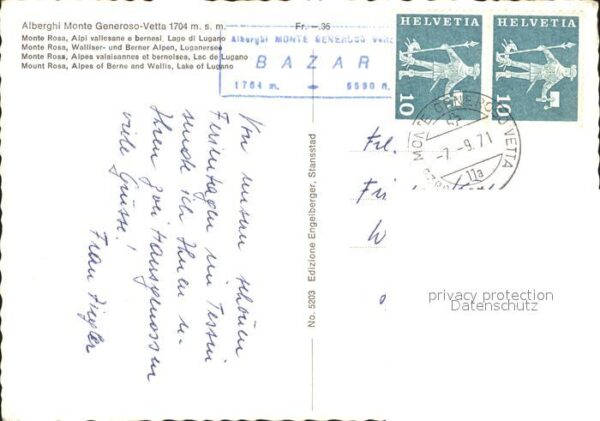 Alberghi Monte Generoso-Vetta 1704 m. s. m.
Fr. –.35
Monte Rosa, Alpi vallesane e bernesi, Lago di Lugano
Monte Rosa, Walliser- und Berner Alpen, Luganersee
Monte Rosa, Alpes valaisannes et bernoises, Lac de Lugano
Mount Rosa, Alpes of Berne and Wallis, Lake of Lugano
Alberghi MONTE GENEROSO Vetta
BAZAR
1704 m. 5590 ft.
HELVETIA
HELVETIA
10
10
MONTE GENEROSO VETTA
-7.-9.71
11a
Von unsern schönen
Ferientagen im Tessin
sende ich Ihnen u.
Ihren zwei Hausgenossen
viele Grüsse!
Frau Ziegler
No. 5203 Edizione Engelberger, Stansstad
Frl.
privacy protection
Datenschutz